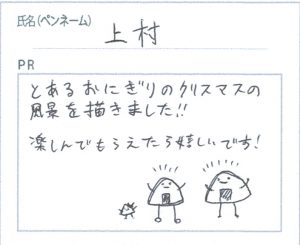 氏名(ペンネーム)
上村
PR
とあるおにぎりのクリスマスの
風景を描きました!!
楽しんでもらえたら嬉しいです!